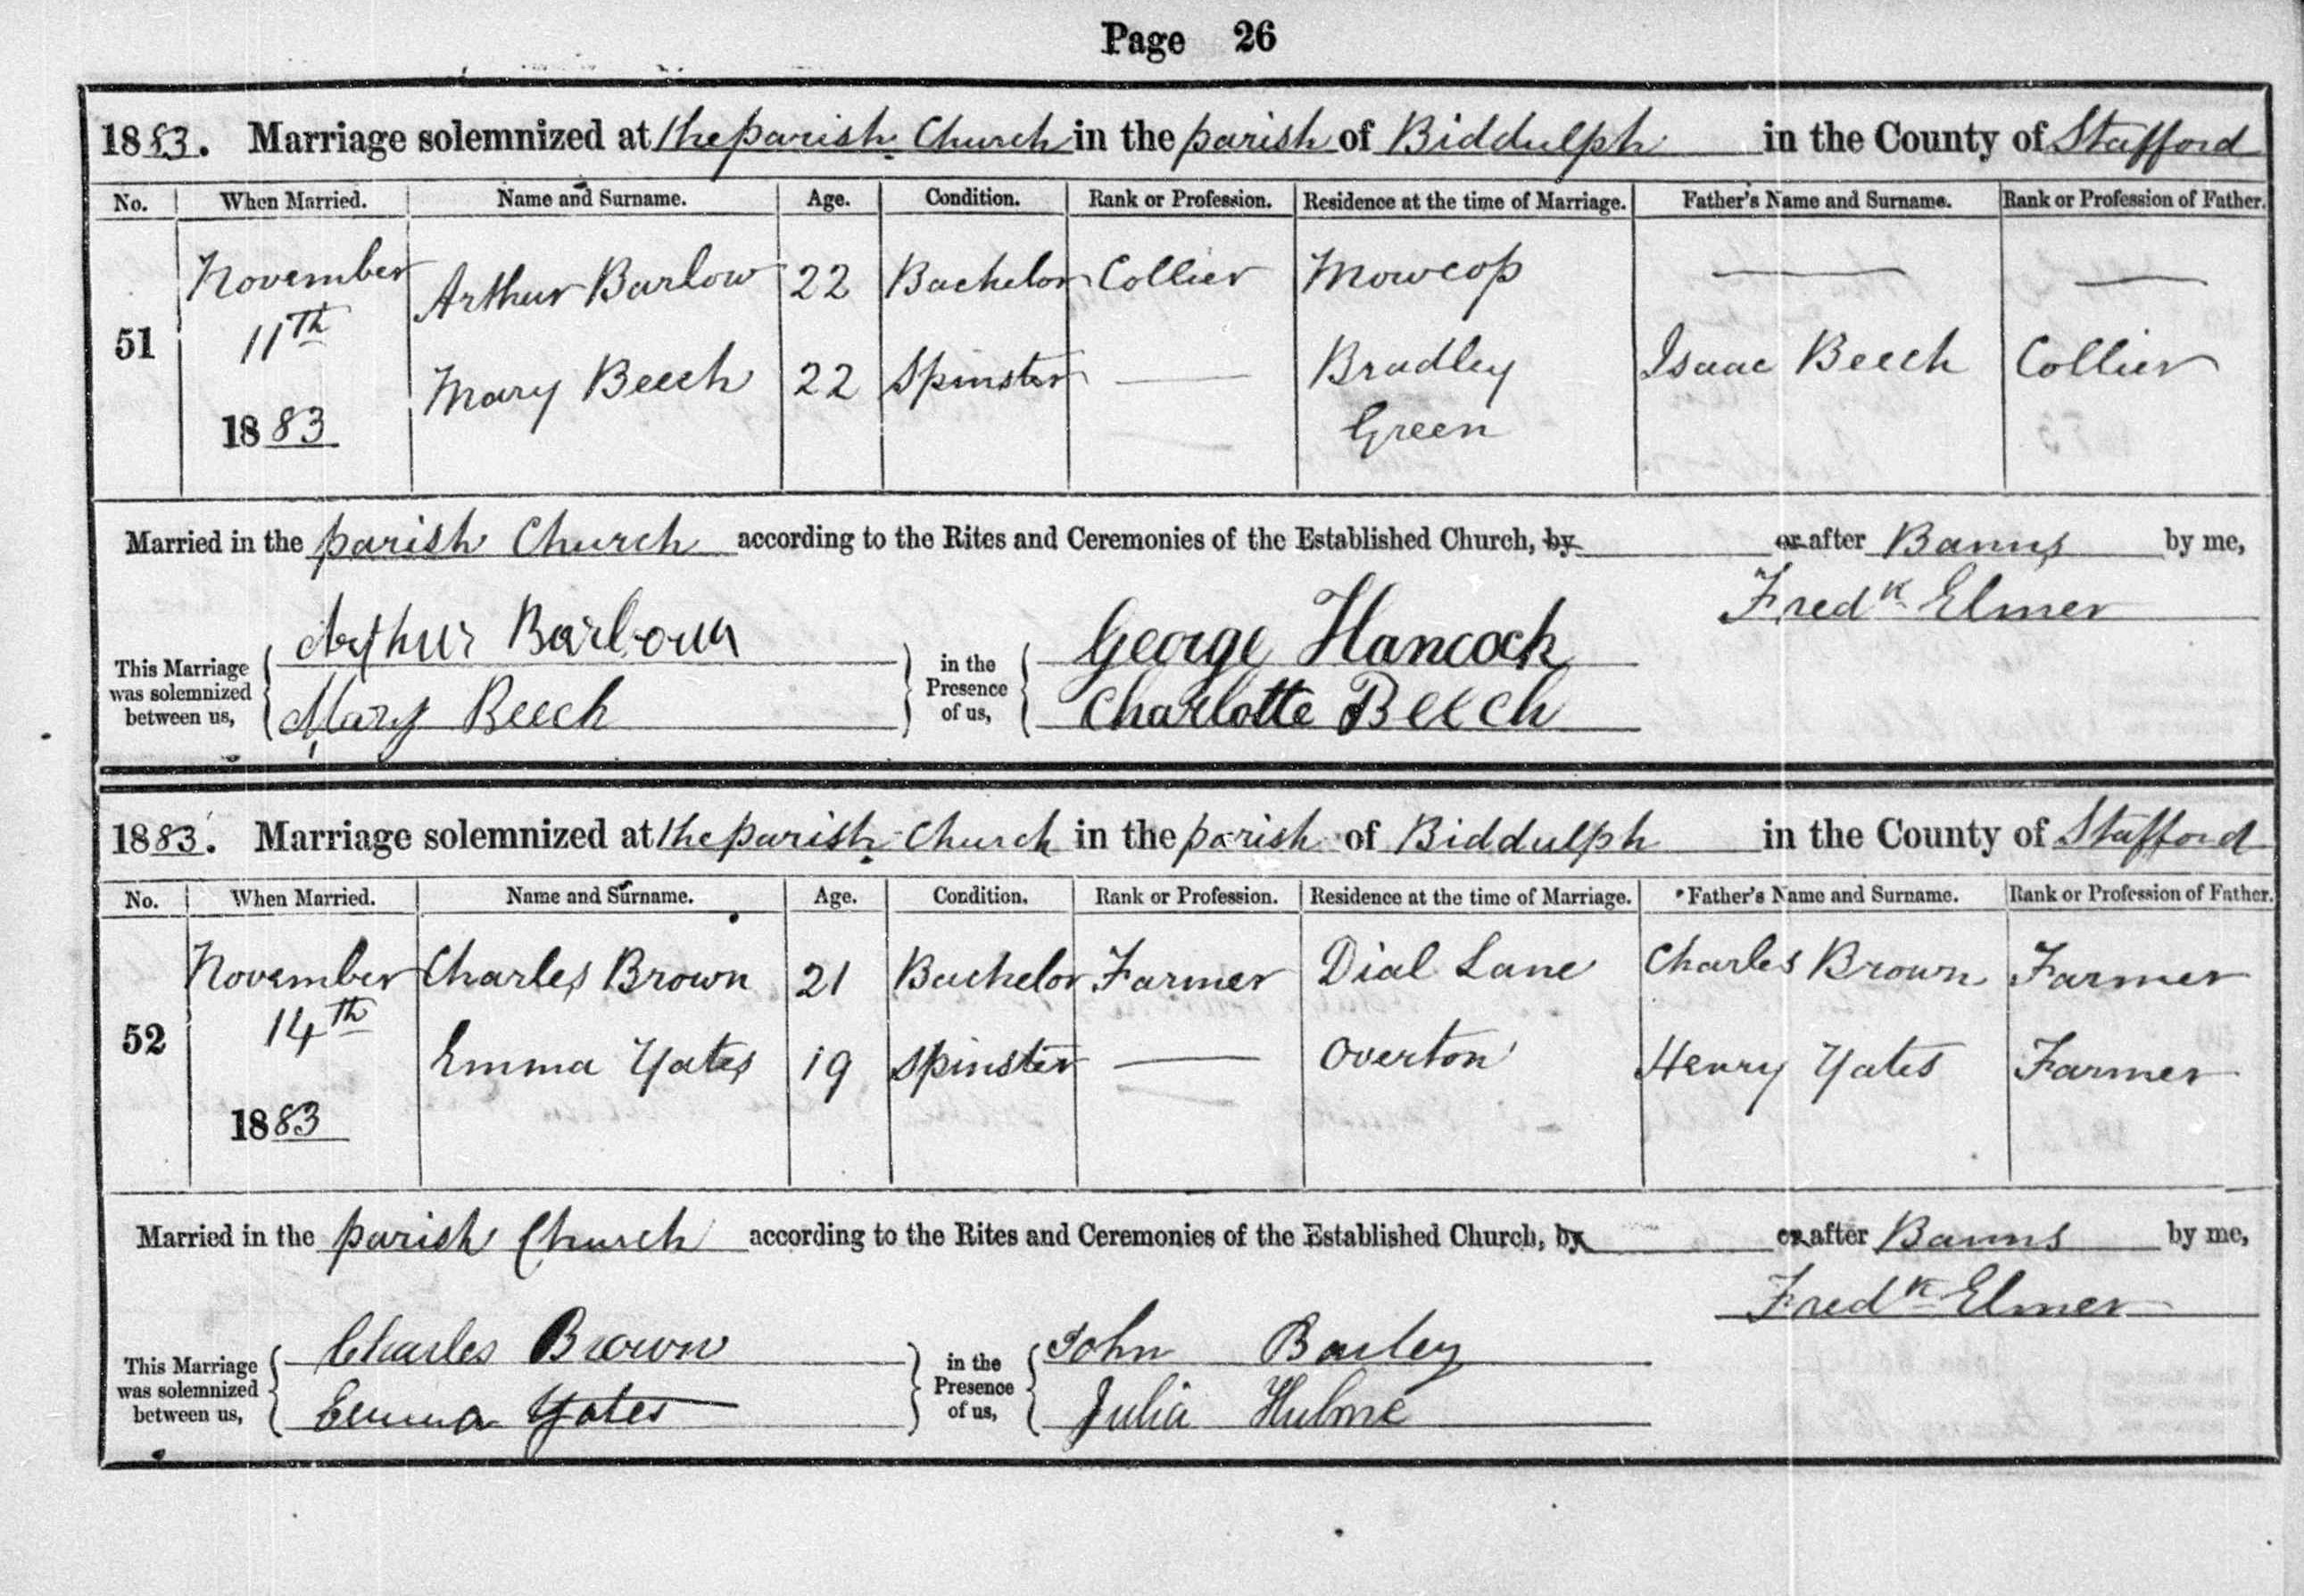 Page 26
1883. Marriage solemnized at the parish Church in the parish of Biddulph in the County of Stafford
No. When Married. Name and Surname. Age. Condition. Rank or Profession. Residence at the time of Marriage. Father's Name and Surname. Rank or Profession of Father.
November Arthur Barlow 22 Bachelor Collier Mowcop — —
51 11th
Mary Beech 22 Spinster — Bradley Isaac Beech Collier
1883 Green
Married in the parish Church according to the Rites and Ceremonies of the Established Church, by or after Banns by me,
Fredk Elmer
Arthur Barlow George Hancock
This Marriage was solemnized between us, in the Presence of us,
Mary Beech Charlotte Beech
1883. Marriage solemnized at the parish Church in the parish of Biddulph in the County of Stafford
No. When Married. Name and Surname. Age. Condition. Rank or Profession. Residence at the time of Marriage. Father's Name and Surname. Rank or Profession of Father.
November Charles Brown 21 Bachelor Farmer Dial Lane Charles Brown Farmer
52 14th
Emma Yates 19 Spinster — Overton Henry Yates Farmer
1883
Married in the parish Church according to the Rites and Ceremonies of the Established Church, by or after Banns by me,
Fredk Elmer
Charles Brown John Bailey
This Marriage was solemnized between us, in the Presence of us,
Emma Yates Julia Hulme